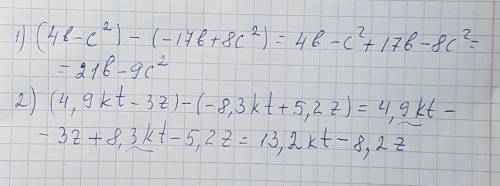 1) (4b-c²)-(-17b+8c²)=4b-c²+17b-8c²=
=21b-9c²
2) (4,9kt-3z)-(-8,3kt+5,2z)=4,9kt-
-3z+8,3kt-5,2z=13,2kt-8,2z